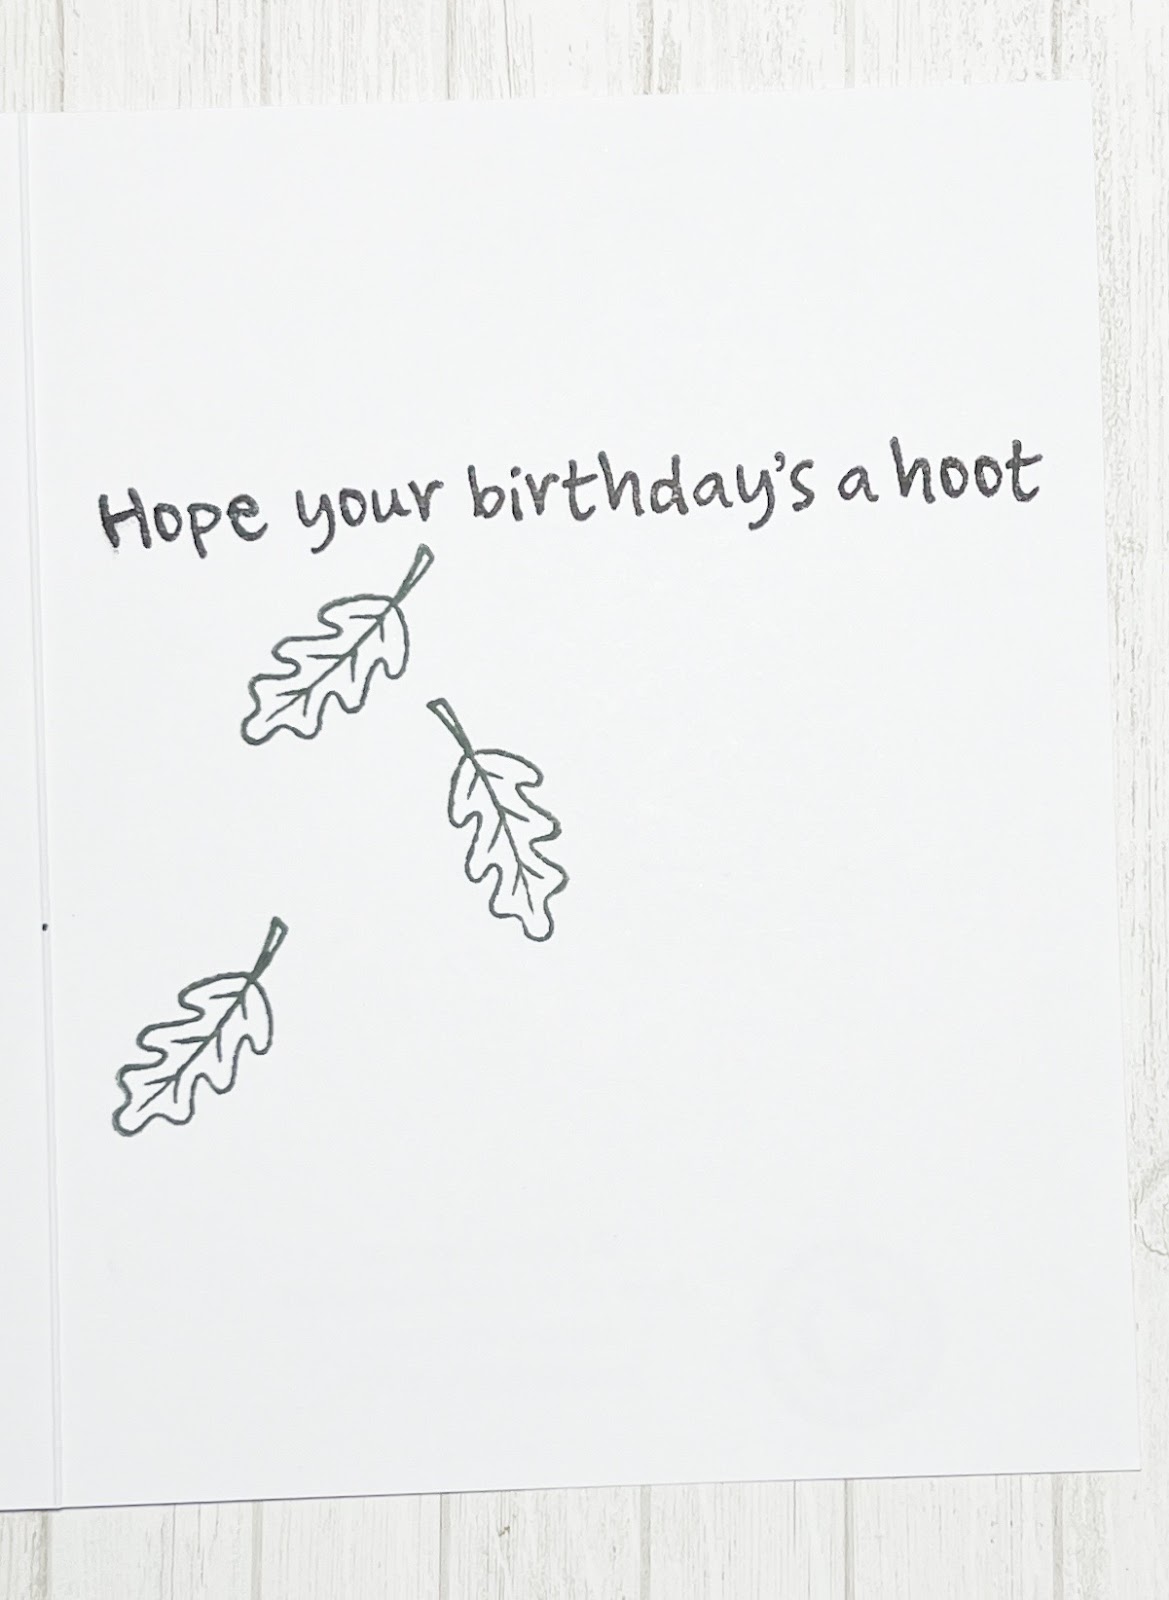 Hope your birthday's a hoot